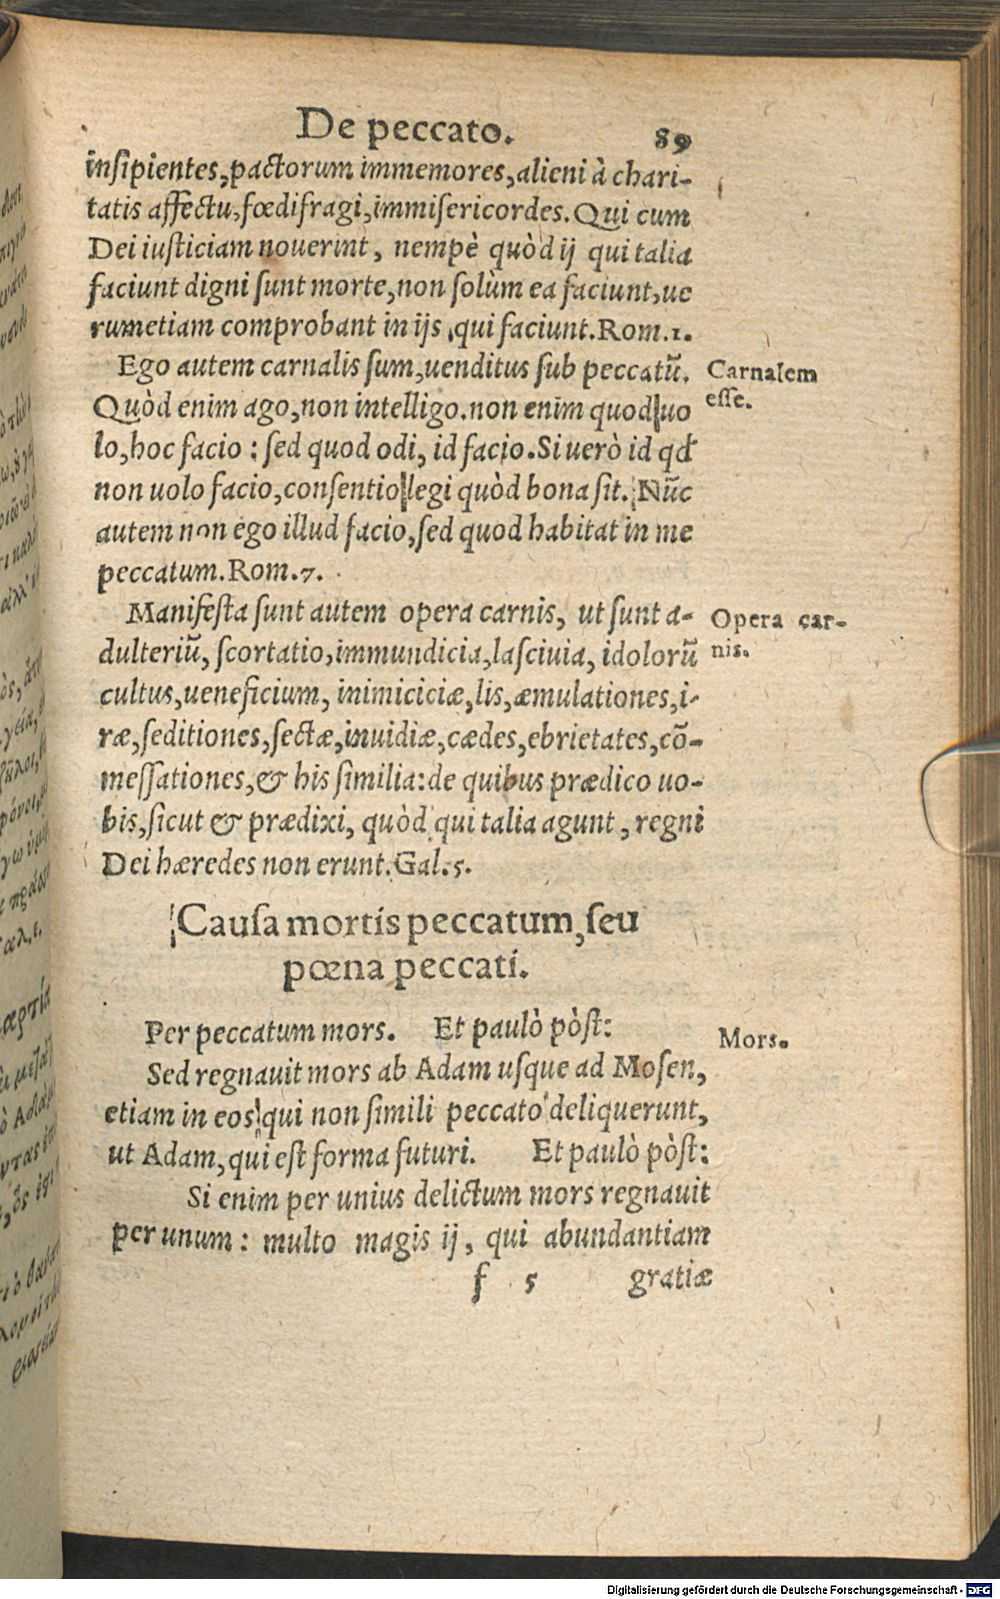 De peccato. 89
insipientes, pactorum immemores, alieni à chari-
tatis affectu, fœdifragi, immisericordes. Qui cum
Dei iusticiam nouerint, nempè quòd ij qui talia
faciunt digni sunt morte, non solùm ea faciunt, ue
rumetiam comprobant in ijs, qui faciunt. Rom. 1.
Ego autem carnalis sum, uenditus sub peccatũ.
Carnalem
esse.
Quòd enim ago, non intelligo. non enim quod uo
lo, hoc facio: sed quod odi, id facio. Si uerò id qd
non uolo facio, consentio legi quòd bona sit. Nũc
autem non ego illud facio, sed quod habitat in me
peccatum. Rom. 7.
Manifesta sunt autem opera carnis, ut sunt a-
Opera car-
nis.
dulteriũ, scortatio, immundicia, lasciuia, idolorũ
cultus, ueneficium, inimiciciæ, lis, æmulationes, i-
ræ, seditiones, sectæ, inuidiæ, cædes, ebrietates, cõ-
messationes, & his similia: de quibus prædico uo-
bis, sicut & prædixi, quòd qui talia agunt, regni
Dei hæredes non erunt. Gal. 5.
Causa mortis peccatum, seu
pœna peccati.
Per peccatum mors. Et paulò pòst:
Mors.
Sed regnauit mors ab Adam usque ad Mosen,
etiam in eos qui non simili peccato deliquerunt,
ut Adam, qui est forma futuri. Et paulò pòst:
Si enim per unius delictum mors regnauit
per unum: multo magis ij, qui abundantiam
f 5 gratiæ
Digitalisierung gefördert durch die Deutsche Forschungsgemeinschaft - DFG